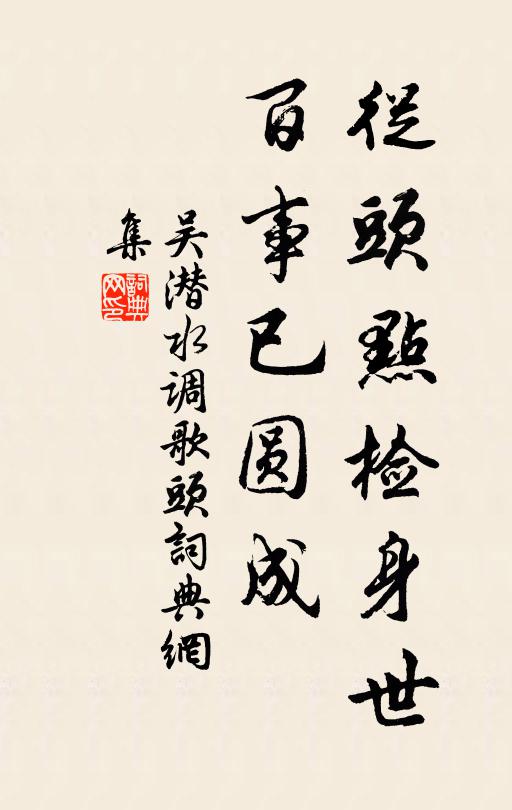 從頭點检身世
百事已圆成
吴潜水调歌頭詞典網
集
詞典网印